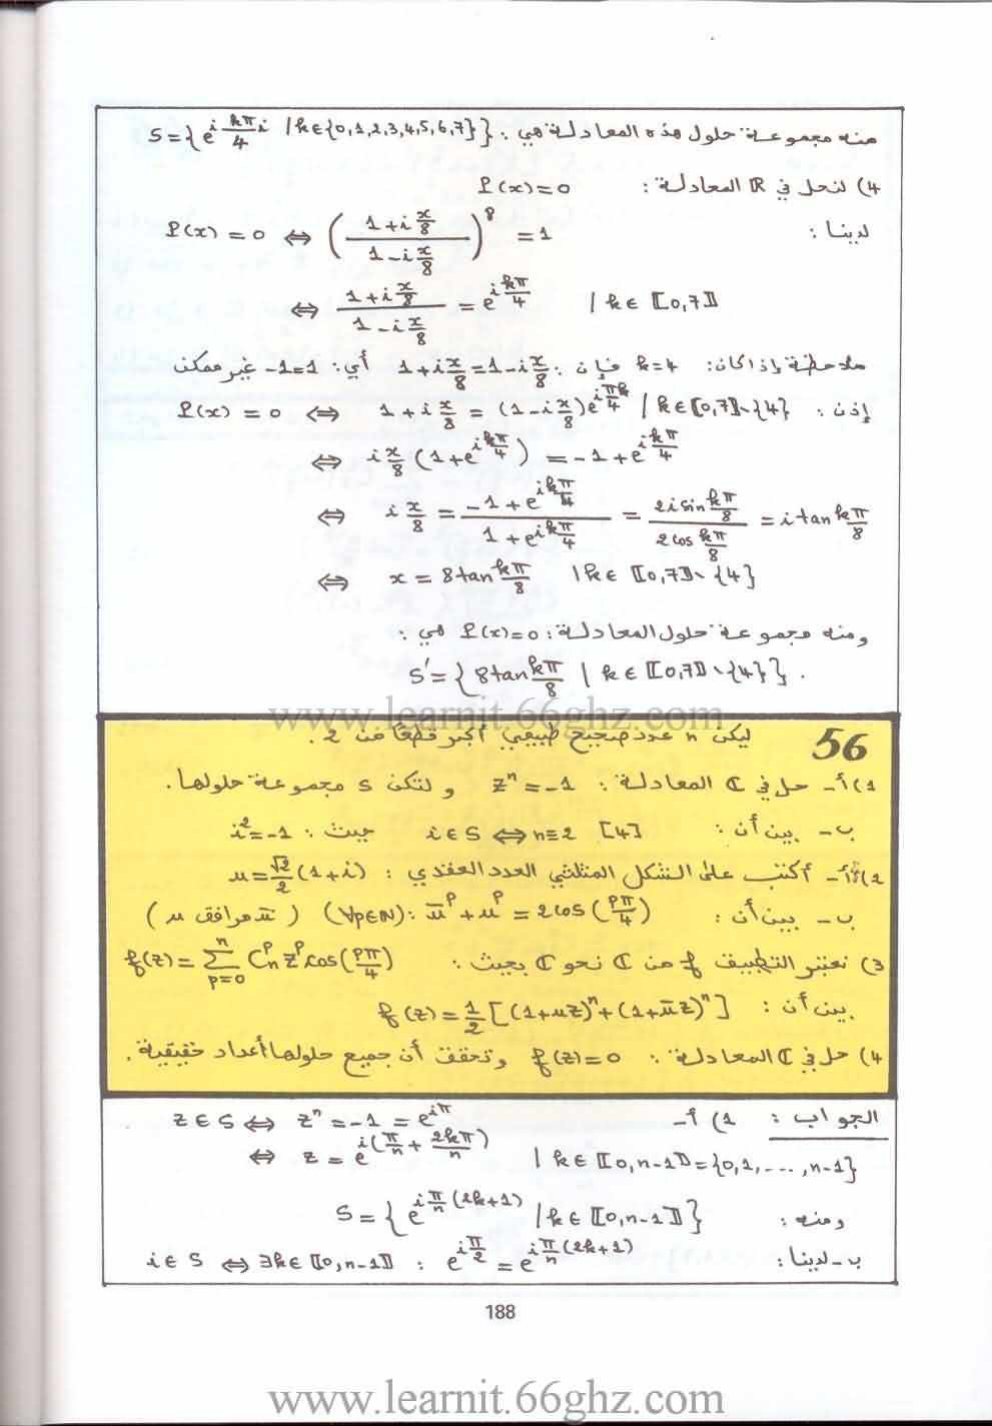 منه مجموعة حلول هذه المعادلة هي: S={e^{i kπ/4 i} / k∈{0,1,2,3,4,5,6,7}}
4) لنحل في ℝ المعادلة: P(x)=0
لدينا: P(x)=0 ⇔ ((1+i x/8)/(1-i x/8))^8 = 1
⇔ (1+i x/8)/(1-i x/8) = e^{i kπ/4} / k∈⟦0,7⟧
ملاحظة إذا كان: k=4 فإن: 1+i x/8 = 1-i x/8 أي: 1=1- غير ممكن
إذن: P(x)=0 ⇔ 1+i x/8 = (1-i x/8)e^{i πk/4} / k∈⟦0,7⟧∖{4}
⇔ i x/8 (1+e^{i kπ/4}) = -1+e^{i kπ/4}
⇔ i x/8 = (-1+e^{i kπ/4})/(1+e^{i kπ/4}) = (2i sin kπ/8)/(2cos kπ/8) = i tan kπ/8
⇔ x = 8tan kπ/8 / k∈⟦0,7⟧∖{4}
ومنه مجموعة حلول المعادلة: P(x)=0 هي:
S'={8tan kπ/8 / k∈⟦0,7⟧∖{4}}.
www.learnit.66ghz.com
56 ليكن n عدد صحيح طبيعي أكبر قطعا من 2.
1) أ- حل في ℂ المعادلة: z^n=-1 و لتكن S مجموعة حلولها.
ب- بين أن: i∈S ⇔ n≡2 [4] حيث: i²=-1
2) أ- أكتب على الشكل المثلثي العدد العقدي: u=√2/2 (1+i)
ب- بين أن: (∀p∈ℕ): ū^p+u^p=2cos(pπ/4) (ū مرافق u)
3) نعتبر التطبيق f من ℂ نحو ℂ بحيث: f(z)=∑_{p=0}^{n} C_n^p z^p cos(pπ/4)
بين أن: f(z)=1/2[(1+uz)^n+(1+ūz)^n]
4) حل في ℂ المعادلة: f(z)=0 وتحقق أن جميع حلولها أعداد حقيقية.
الجواب: 1) أ- z∈S ⇔ z^n=-1=e^{iπ}
⇔ z=e^{i(π/n+2kπ/n)} / k∈⟦0,n-1⟧={0,1,...,n-1}
ومنه: S={e^{i π/n (2k+1)} / k∈⟦0,n-1⟧}
ب- لدينا: i∈S ⇔ ∃k∈⟦0,n-1⟧ : e^{i π/2}=e^{i π/n (2k+1)}
188
www.learnit.66ghz.com